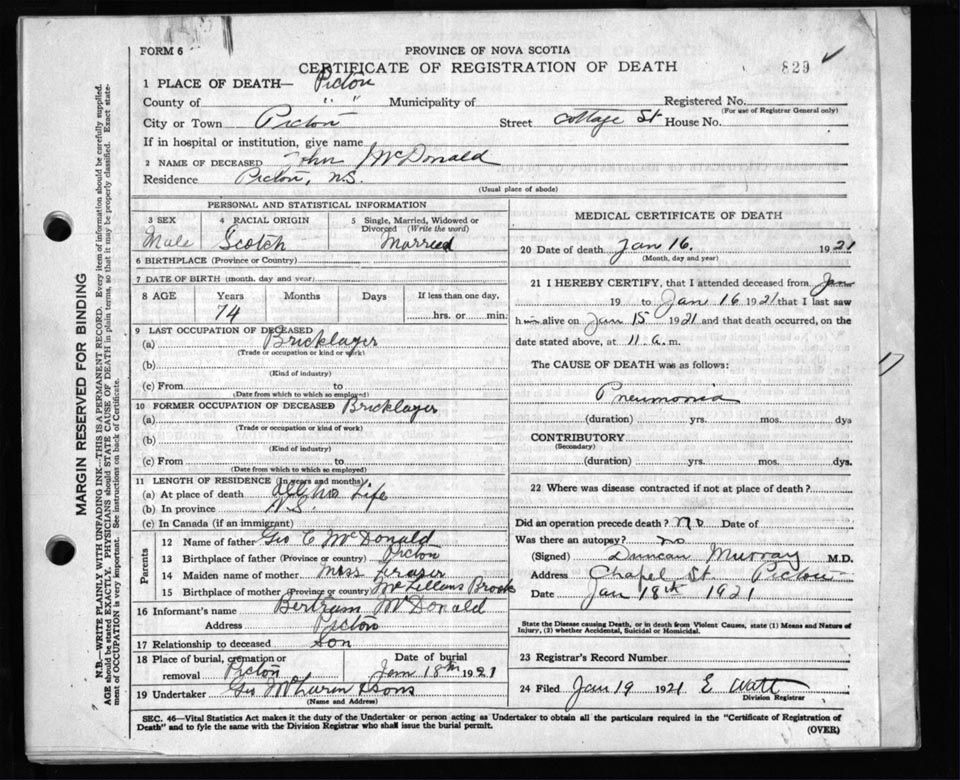 FORM 6
PROVINCE OF NOVA SCOTIA
CERTIFICATE OF REGISTRATION OF DEATH
829
1 PLACE OF DEATH— Pictou
County of " " Municipality of Registered No.
(For use of Registrar General only)
City or Town Pictou Street Cottage St House No.
If in hospital or institution, give name
2 NAME OF DECEASED John McDonald
Residence Pictou, N.S.
(Usual place of abode)
PERSONAL AND STATISTICAL INFORMATION
3 SEX 4 RACIAL ORIGIN 5 Single, Married, Widowed or Divorced (Write the word)
Male Scotch Married
6 BIRTHPLACE (Province or Country)
7 DATE OF BIRTH (month, day and year)
8 AGE Years Months Days If less than one day,
74 hrs. or min.
9 LAST OCCUPATION OF DECEASED
(a) Bricklayer
(Trade or occupation or kind of work)
(b)
(Kind of industry)
(c) From to
(Date from which to which so employed)
10 FORMER OCCUPATION OF DECEASED Bricklayer
(a)
(Trade or occupation or kind of work)
(b)
(Kind of industry)
(c) From to
(Date from which to which so employed)
11 LENGTH OF RESIDENCE (In years and months)
(a) At place of death Life
(b) In province N.S.
(c) In Canada (if an immigrant)
Parents
12 Name of father Geo C McDonald
13 Birthplace of father (Province or country) Pictou
14 Maiden name of mother Miss Fraser
15 Birthplace of mother (Province or country) McLellans Brook
16 Informant's name Bertram McDonald
Address Pictou
17 Relationship to deceased Son
18 Place of burial, cremation or removal Pictou Date of burial Jan 18th 1921
19 Undertaker Geo Sons
(Name and Address)
MEDICAL CERTIFICATE OF DEATH
20 Date of death Jan 16. 1921
(Month, day and year)
21 I HEREBY CERTIFY, that I attended deceased from
19 to Jan 16 1921 that I last saw
him alive on Jan 15 1921 and that death occurred, on the
date stated above, at 11 a.m.
The CAUSE OF DEATH was as follows:
17
Pneumonia
(duration) yrs. mos. dys
CONTRIBUTORY
(Secondary)
(duration) yrs. mos. dys.
22 Where was disease contracted if not at place of death?
Did an operation precede death? No Date of
Was there an autopsy? no
(Signed) Duncan Murray M.D.
Address Chapel St Pictou
Date Jan 18th 1921
State the Disease causing Death, or in death from Violent Causes, state (1) Means and Nature of
Injury, (2) whether Accidental, Suicidal or Homicidal.
23 Registrar's Record Number
24 Filed Jan 19 1921 E Watt
Division Registrar
SEC. 46—Vital Statistics Act makes it the duty of the Undertaker or person acting as Undertaker to obtain all the particulars required in the "Certificate of Registration of
Death" and to fyle the same with the Division Registrar who shall issue the burial permit.
(OVER)
MARGIN RESERVED FOR BINDING
N.B.—WRITE PLAINLY WITH UNFADING INK—THIS IS A PERMANENT RECORD. Every item of information should be carefully supplied.
AGE should be stated EXACTLY. PHYSICIANS should STATE CAUSE OF DEATH in plain terms, so that it may be properly classified. Exact state-
ment of OCCUPATION is very important. See instructions on back of Certificate.